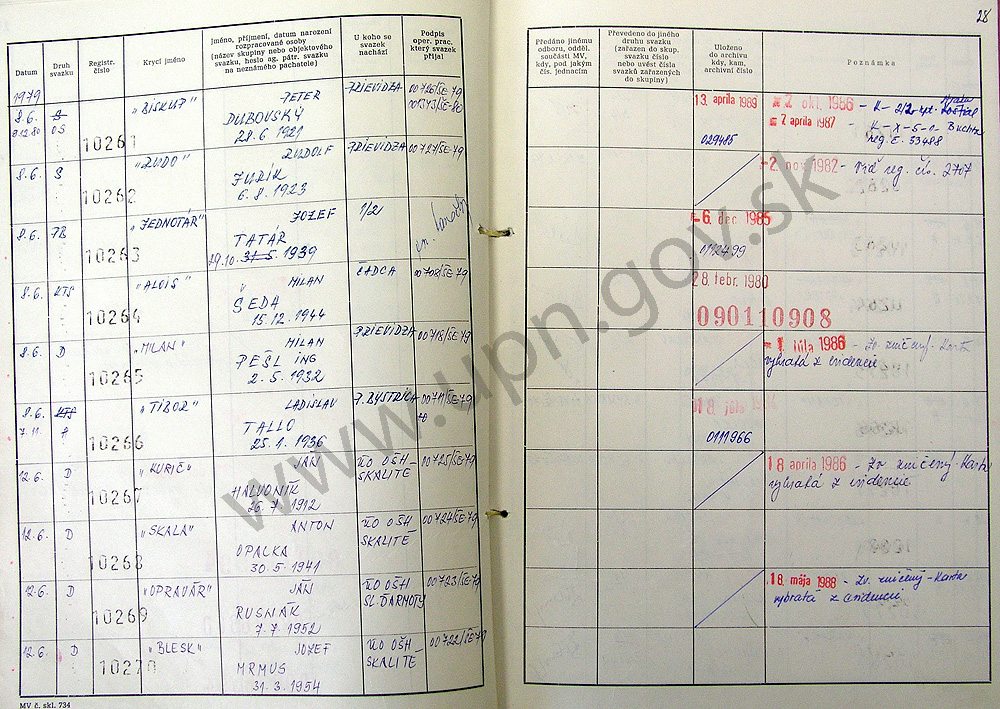 28
Datum
Druh svazku
Registr. číslo
Krycí jméno
Jméno, příjmení, datum narození
rozpracované osoby
(název skupiny nebo objektového
svazku, heslo ag. pátr. svazku
na neznámého pachatele)
U koho se
svazek
nachází
Podpis
oper. prac.
který svazek
přijal
Předáno jinému
odboru, odděl.
součásti MV,
kdy, pod jakým
čís. jednacím
Převedeno do jiného
druhu svazku
(zařazen do skup.
svazku číslo
nebo uvést čísla
svazků zařazených
do skupiny)
Uloženo
do archivu
kdy, kam,
archivní číslo
Poznámka
1979
8.6. S "BISKUP" PETER PRIEVIDZA 00726/ŠE-79
9.12.80 OS DUBOVSKÝ
10261 28.6.1921
13. apríla 1989 2. okt. 1986
7 apríla 1987 - K-X-5-0-
029485 reg. č. 33488
8.6. S "RUDO" RUDOLF PRIEVIDZA 00727/ŠE-79
10262 JURÍK
6.8.1923
2. nov 1982 - reg. čís. 2707
8.6. "JEDNOTÁR" JOZEF 1/2
10263 TATÁR
29.10. 31.5. 1939
6. dec. 1985
0112499
8.6. KTS "ALOIS" MILAN ČADCA 00708/ŠE-79
10264 ŠEDA
15.12.1944
28 febr. 1980
090110908
8.6. D "MILAN" MILAN PRIEVIDZA 00718/ŠE-79
10265 PEŠL ING
2.5.1932
1. júla 1986 - Zv. zničený - Karta
vybratá z evidencie
8.6. KTS "TIBOR" LADISLAV P. BYSTRICA 00711/ŠE-79
7.11. A TALLO
10266 25.1.1936
0111966
12.6. D "KURIČ" JÁN ÚO OŠH – 00725/ŠE-79
10267 HALVONÍK SKALITÉ
26.7.1912
18 apríla 1986 - Zv. zničený - Karta
vybratá z evidencie
12.6. D "SKALA" ANTON ÚO OŠH 00724/ŠE-79
10268 OPALKA SKALITÉ
30.5.1941
12.6. D "OPRAVÁR" JÁN ÚO OŠH 00723/ŠE-79
10269 RUSNÁK SL. ĎARMOTY
7.7.1952
18. mája 1988 - Zv. zničený - Karta
vybratá z evidencie
12.6. D "BLESK" JOZEF ÚO OŠH – 00722/ŠE-79
10270 MRMUS SKALITÉ
31.3.1954
MV č. skl. 734
www.upn.gov.sk